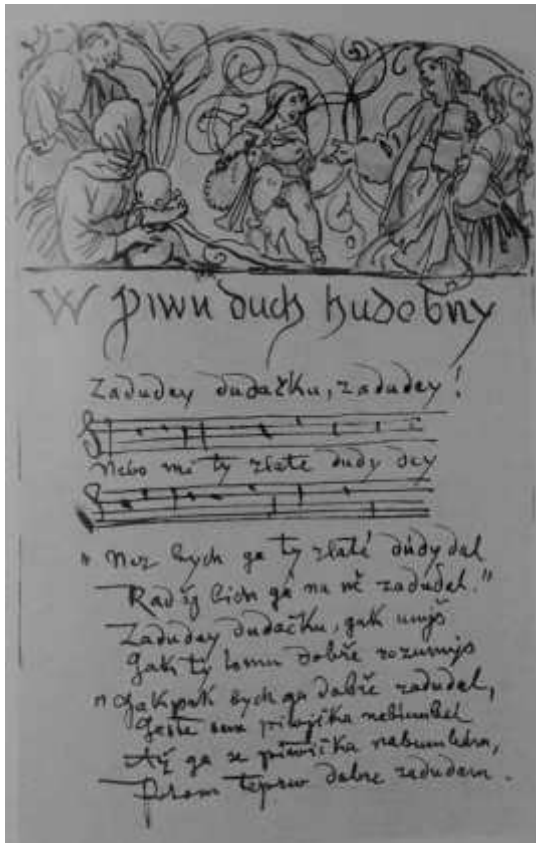 W piwu duch hudebny
Zadudey dudačku, zadudey!
Nebo mi ty zlate dudy dey
„ Nez bych ga ty zlaté dúdy dal
Radšj bich gá na ně zadudal."
Zaduday dudačku, gak umjš
Gak ty tomu dobře rozumjs
„ Gakpak bych ga dobře zadudal,
Geste sem piwjčka nebumbal
Až ga se piwička nabumbám,
Prom teprw dobre zadudam.